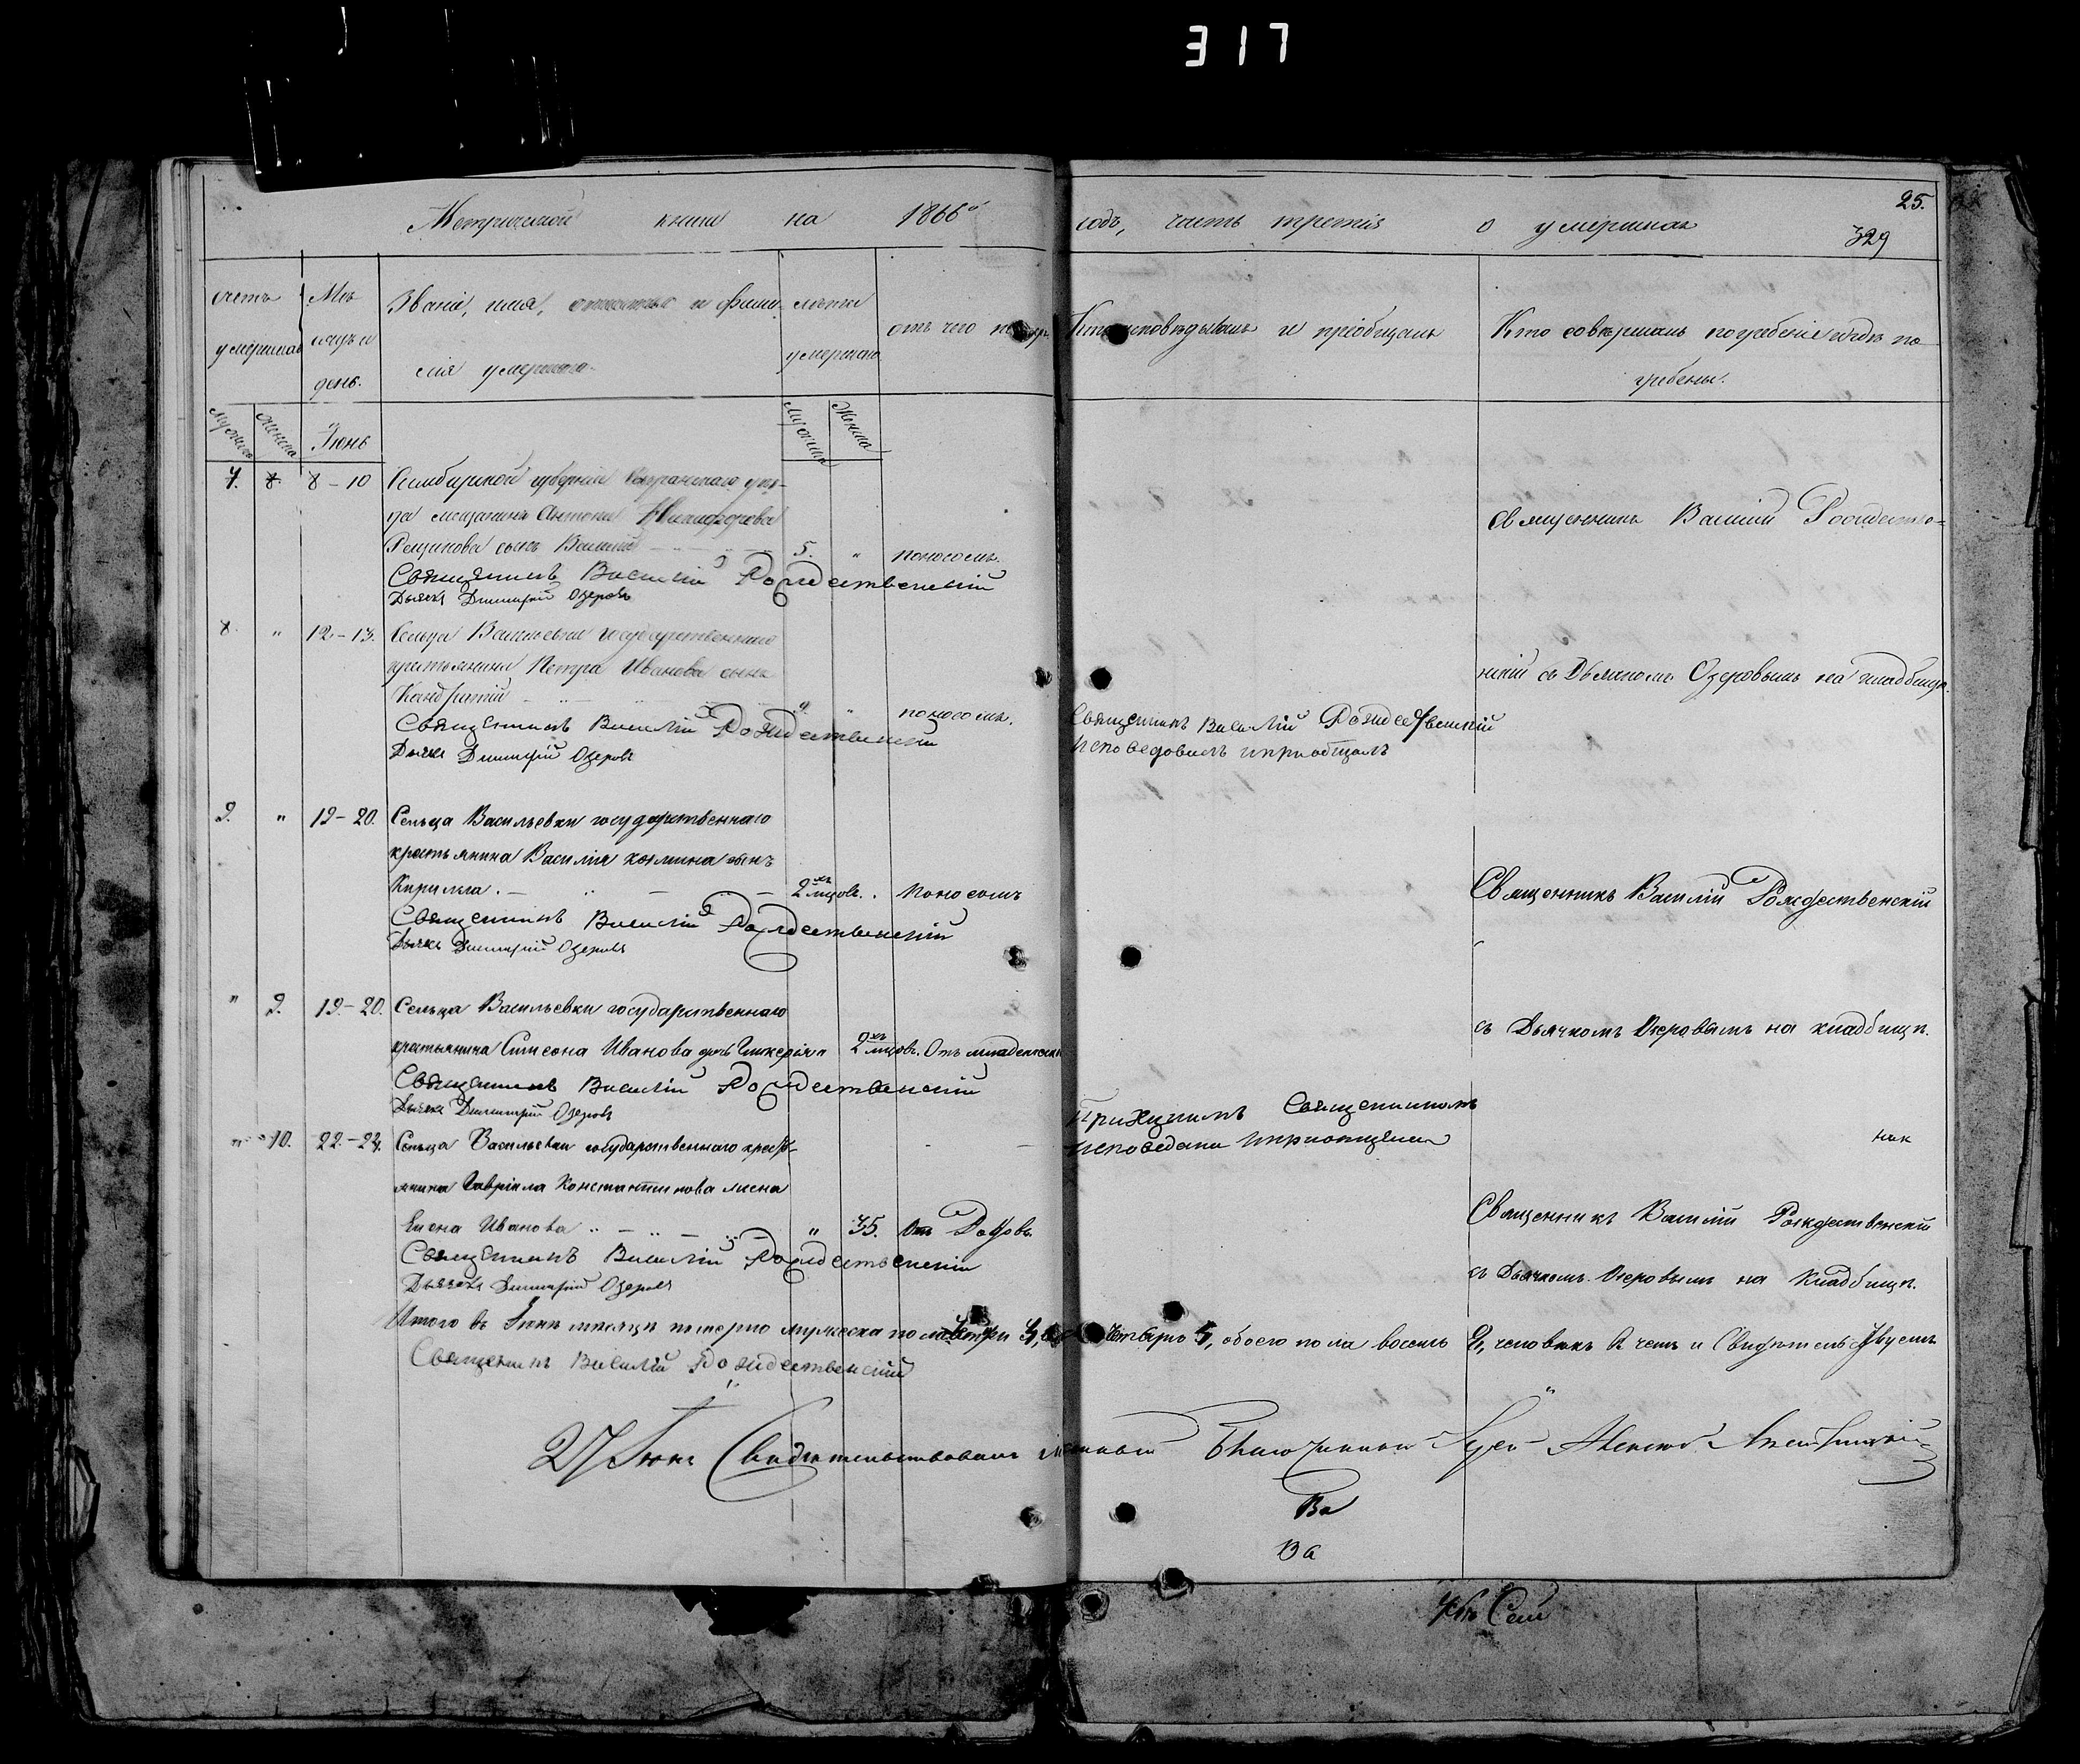 317
25.
329
Метрической книги на 1866й годъ, часть третія о умершихъ
счетъ умершихъ
Мѣсяцъ и день.
Званіе, имя, отчество и фамилія умершаго.
лѣта умершаго
отъ чего
Кто исповѣдывалъ и пріобщалъ
Кто совершалъ погребеніе и гдѣ погребены.
мужска
женска
Іюнь
мужска
женска
7. 8. 8-10 Симбирской губерніи Сызранскаго уѣз-
да мѣщанина Антона Никифорова
сынъ Василій 5. " поносомъ.
Священникъ Василій Рождественскій
Дьячекъ Димитрій Озеровъ
священникъ Василій Рождестве-
8. " 12-13. Сельца Васильевки государственнаго
крестьянина Петра Иванова сынъ
Кандратій " поносомъ.
Священникъ Василій Рождественскій
Дьячекъ Димитрій Озеровъ
Священникъ Василій Рождественскій
исповедовалъ и приобщалъ
нскій съ Дьячкомъ Озеровымъ на кладбищѣ.
9. " 19-20. Сельца Васильевки государственнаго
крестьянина Василія козмина сынъ
Кирилла. 2 мцовъ. поносомъ
Священникъ Василій Рождественскій
Дьячекъ Димитрій Озеровъ
Священникъ Василій Рождественскій
" 9. 19-20. Сельца Васильевки государственнаго
крестьянина Симеона Иванова дочь Гликерія 2 мцовъ. Отъ младенческ
Священникъ Василій Рождественскій
Дьячекъ Димитрій Озеровъ
съ Дьячкомъ Озеровымъ на кладбищѣ.
" 10. 22-24. Сельца Васильевки государственнаго кресть-
янина Гавріила Константинова жена
Елена Иванова " 35. Отъ Родовъ.
Священникъ Василій Рождественскій
Дьячекъ Димитрій Озеровъ
Приходскимъ Священникомъ
исповедана и приобщена
Священникъ Василій Рождественскій
съ Дьячкомъ Озеровымъ на Кладбищѣ.
Итого въ Іюнѣ мѣсяцѣ померло мужеска пола обоего пола восемь 8, человѣкъ В чемъ и Свидѣтельствуемъ
Священникъ Василій Рождественскій
27 Іюня Свидѣтельствовалъ Благочинный Іерей
Ва
Ва